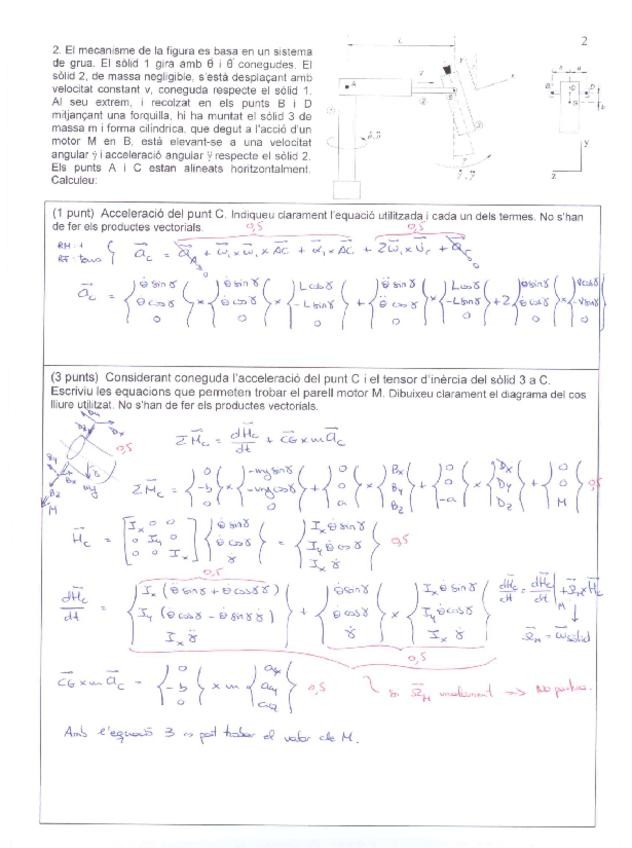 2
2. El mecanisme de la figura es basa en un sistema
de grua. El sòlid 1 gira amb θ̇ i θ̈ conegudes. El
sòlid 2, de massa negligible, s'està desplaçant amb
velocitat constant v, coneguda respecte el sòlid 1.
Al seu extrem, i recolzat en els punts B i D
mitjançant una forquilla, hi ha muntat el sòlid 3 de
massa m i forma cilíndrica, que degut a l'acció d'un
motor M en B, està elevant-se a una velocitat
angular γ̇ i acceleració angular γ̈ respecte el sòlid 2.
Els punts A i C estan alineats horitzontalment.
Calculeu:
(1 punt) Acceleració del punt C. Indiqueu clarament l'equació utilitzada i cada un dels termes. No s'han
de fer els productes vectorials.
0,5 0,5
a_C = a_A + ω₁ x ω₁ x AC + α₁ x AC + 2ω₁ x v_r + a_r
a_C = {θ̇ sinγ, θ̇ cosγ, 0} x {θ̇ sinγ, θ̇ cosγ, 0} x {L cosγ, -L sinγ, 0} + {θ̈ sinγ, θ̈ cosγ, 0} x {L cosγ, -L sinγ, 0} + 2 {θ̇ sinγ, θ̇ cosγ, 0} x {v cosγ, -v sinγ, 0}
(3 punts) Considerant coneguda l'acceleració del punt C i el tensor d'inèrcia del sòlid 3 a C.
Escriviu les equacions que permeten trobar el parell motor M. Dibuixeu clarament el diagrama del cos
lliure utilitzat. No s'han de fer els productes vectorials.
0,5
ΣM_C = dH_C/dt + CG x m a_C
ΣM_C = {0, -b, 0} x {-mg sinγ, -mg cosγ, 0} + {0, 0, a} x {Bx, By, Bz} + {0, 0, -a} x {Dx, Dy, Dz} + {0, 0, M} 0,5
H_C = [Ix 0 0, 0 Iy 0, 0 0 Ix] {θ̇ sinγ, θ̇ cosγ, γ̇} = {Ix θ̇ sinγ, Iy θ̇ cosγ, Ix γ̇} 0,5
0,5
dH_C/dt = {Ix (θ̈ sinγ + θ̇ cosγ γ̇), Iy (θ̈ cosγ - θ̇ sinγ γ̇), Ix γ̈} + {θ̇ sinγ, θ̇ cosγ, γ̇} x {Ix θ̇ sinγ, Iy θ̇ cosγ, Ix γ̇} dH_C/dt = dH_C/dt|_M + Ω_M x H_C
Ω_M = ω sòlid
0,5
CG x m a_C = {0, -b, 0} x m {ax, ay, az} 0,5
Amb l'equació 3 es pot trobar el valor de M.